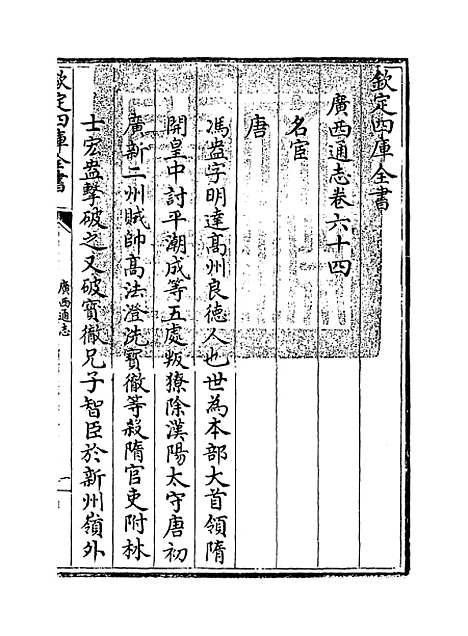 欽定四庫全書
廣西通志卷六十四
名宦
唐
馮盎字明達髙州良徳人也世為本部大首領隋
開皇中討平潮成等五處叛獠除漢陽太守唐初
廣新二州賊帥髙法澄洗寳徹等殺隋官吏附林
士宏盎擊破之又破寳徹兄子智臣於新州嶺外
欽定四庫全書
廣西通志
一